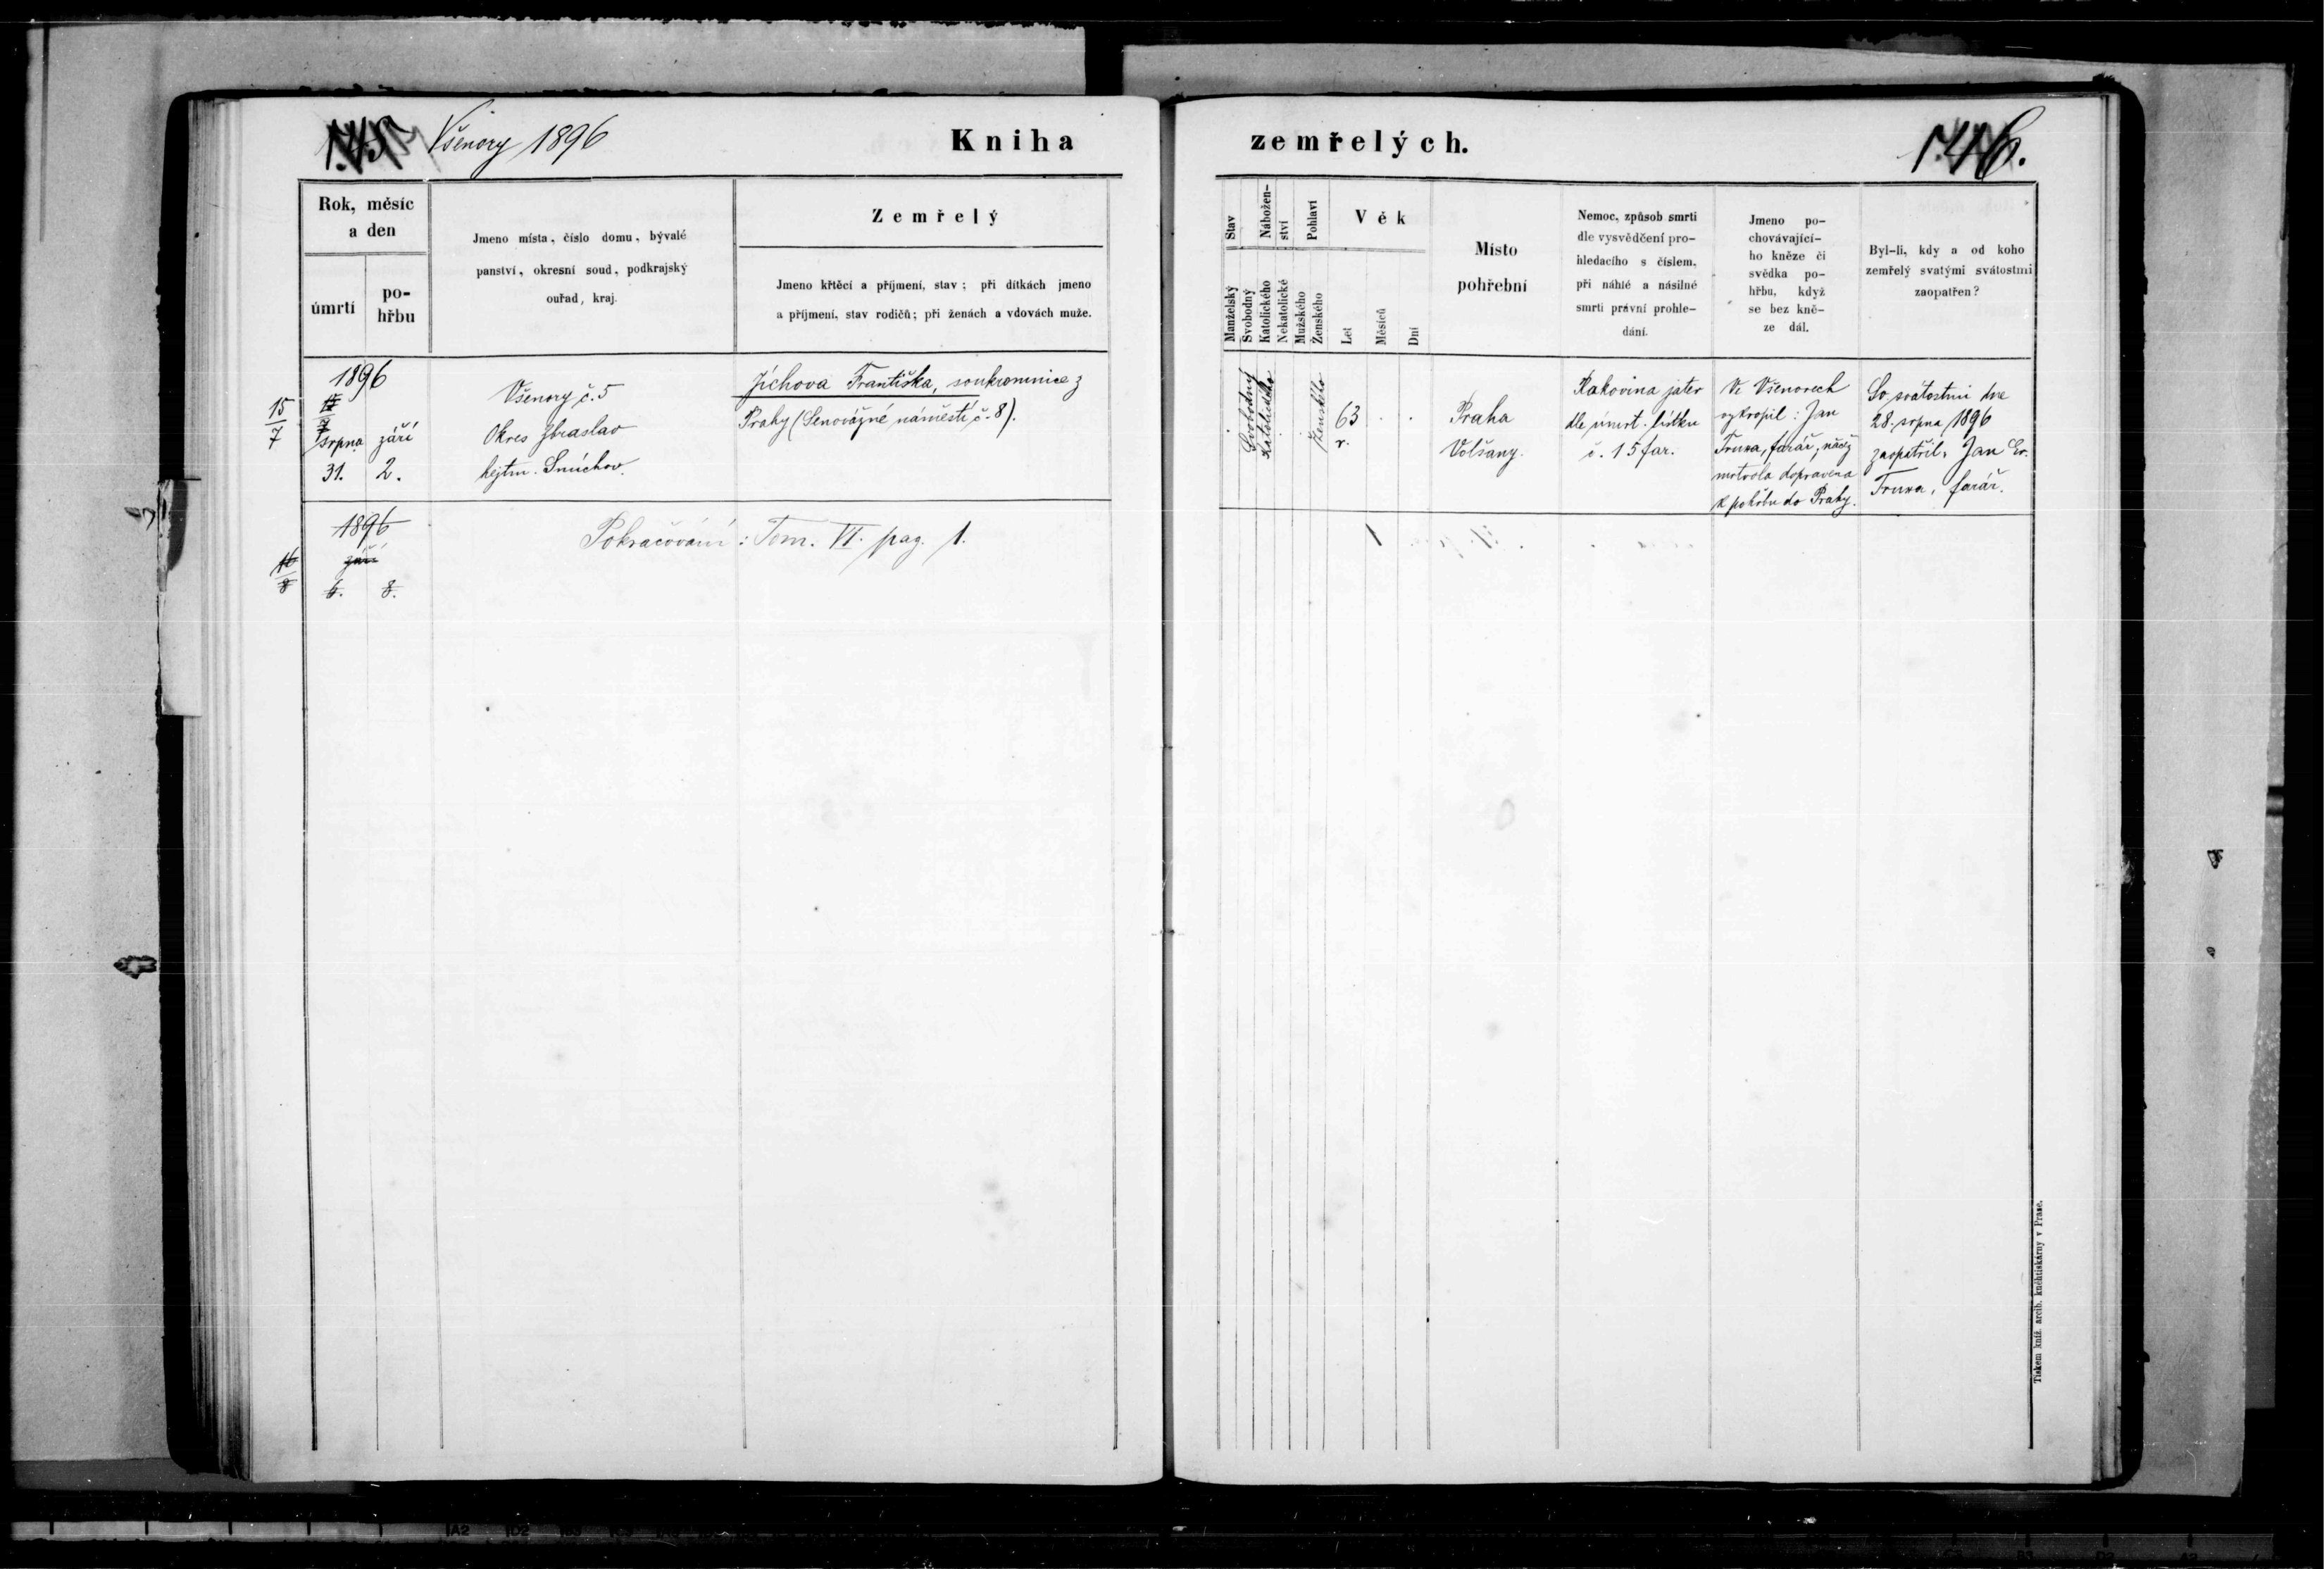 145 Všenory 1896
Kniha zemřelých.
146.
Rok, měsíc
a den
úmrtí
po-
hřbu
Jmeno místa, číslo domu, bývalé
panství, okresní soud, podkrajský
ouřad, kraj.
Zemřelý
Jmeno křtěcí a příjmení, stav; při dítkách jmeno
a příjmení, stav rodičů; při ženách a vdovách muže.
Stav
Manželský
Svobodný
Nábožen-
ství
Katolického
Nekatolické
Pohlaví
Mužského
Ženského
Věk
Let
Měsíců
Dní
Místo
pohřební
Nemoc, způsob smrti
dle vysvědčení pro-
hledacího s číslem,
při náhlé a násilné
smrti právní prohle-
dání.
Jmeno po-
chovávající-
ho kněze či
svědka po-
hřbu, když
se bez kně-
ze dál.
Byl-li, kdy a od koho
zemřelý svatými svátostmi
zaopatřen?
15
7
1896
srpna září
31. 2.
Všenory č. 5
Okres Zbraslav
hejtm. Smíchov.
Jíchova Františka, soukromnice z
Prahy (Senovážné náměstí č. 8).
Svobodný
Katolického
Ženského
63
r.
Praha
Volšany.
Rakovina jater
dle úmrt. lístku
č. 15 far.
Ve Všenorech
vykropil: Jan
farář, načež
mrtvola dopravena
k pohřbu do Prahy.
Sv. svátostmi dne
28. srpna 1896
zaopatřil: Jan Ev.
farář.
1896
září
6. 8.
16
8
Pokračování: Tom. VI. pag. 1.
Tiskem kníž. arcib. knihtiskárny v Praze.